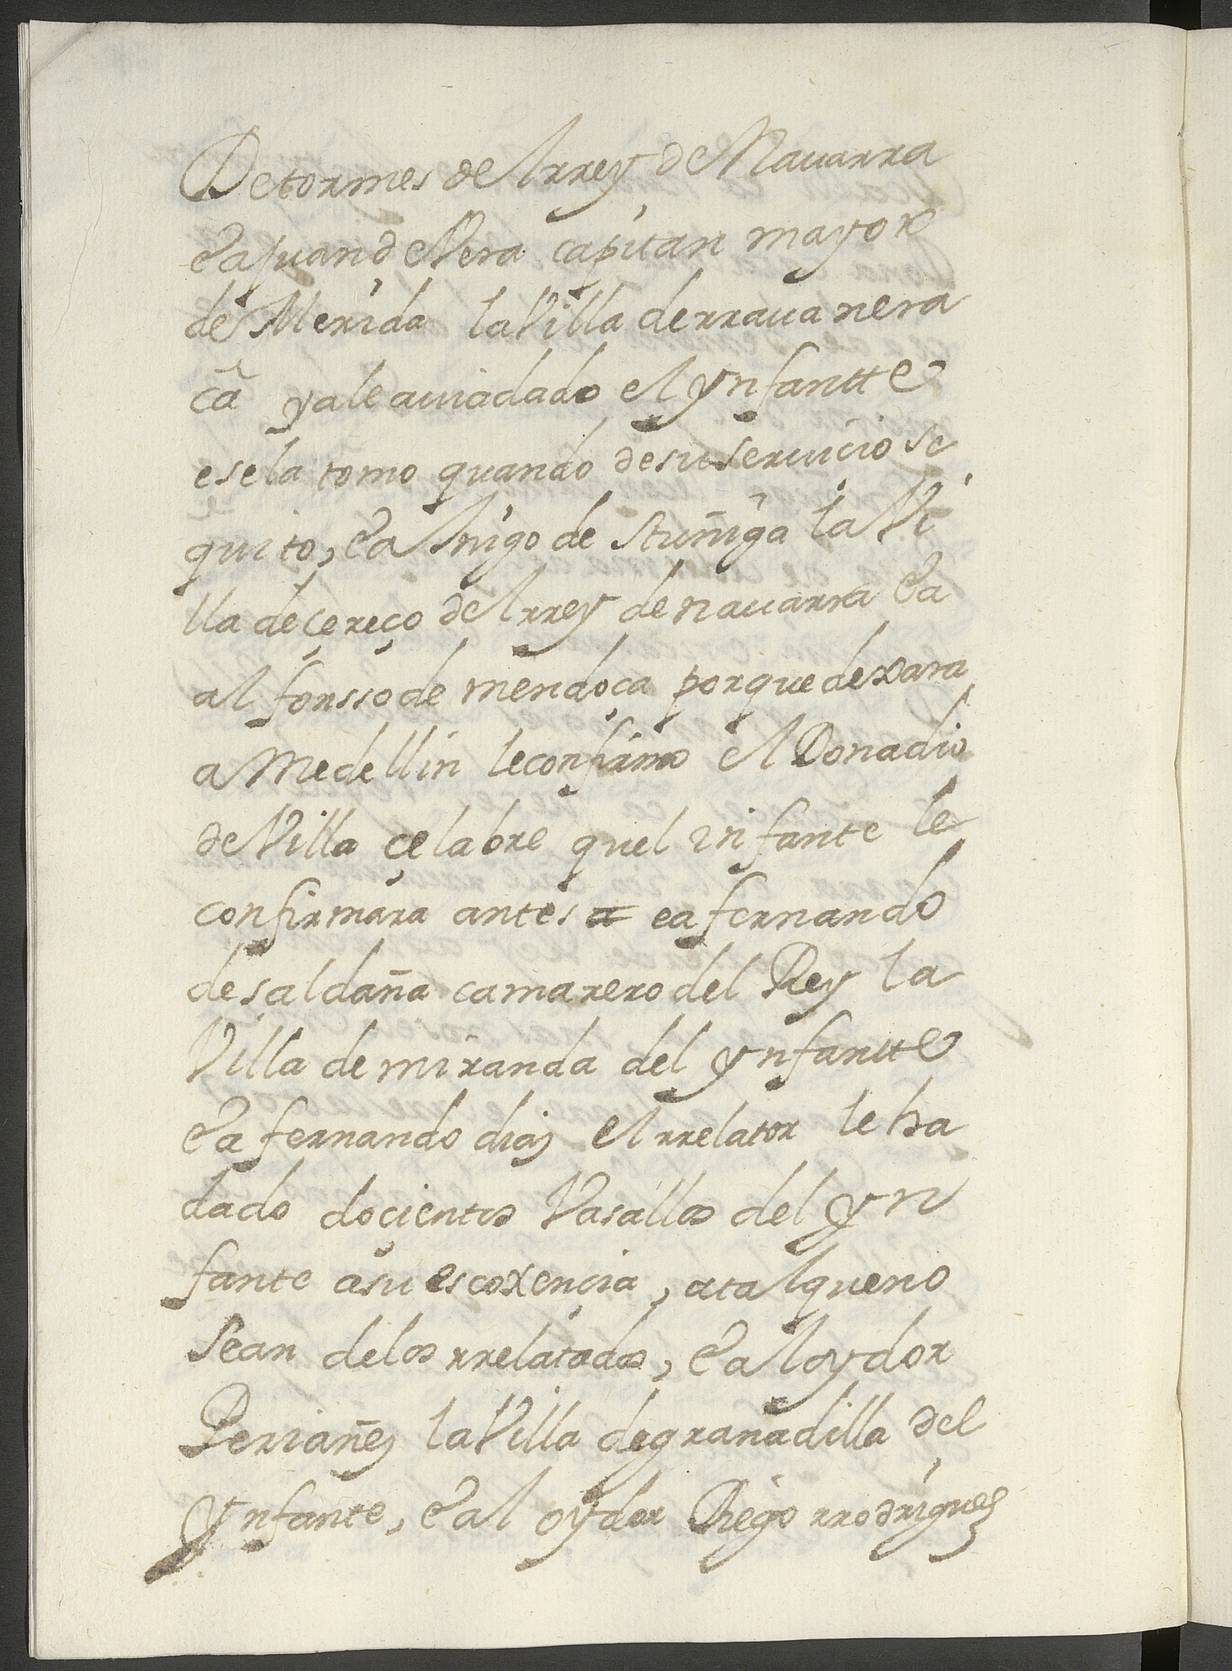 Detormes del rrey de Nauarra
ea juan de Vera capitan mayor
de Merida la Villa de rrauanera
cā ya le auia dado el ynfantte
e se la tomo quando de su seruicio se
quito, ea Inigo de stuñiga la Vi
lla de çereço del rrey de nauarra ea
alfonsso de mendoça porque dexara
a Medellin le confirmo el Donadio
de Villa çelabre quel infante le
confirmara antes a ea fernando
de saldaña camarero del Rey la
Villa de miranda del ynfantte
ea fernando dias el rrelator le ha
dado doçientos Vasallos del yn
fante a su escoxençia, a tal que no
sean de los rrelatados, e al oydor
Periañes la Villa de granadilla del
ynfante, e al oydor Diego rrodrigues